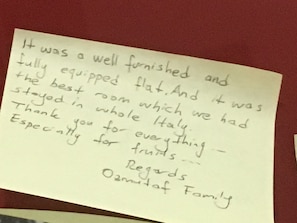 It was a well furnished and
fully equipped flat. And it was
the best room which we had
stayed in whole Italy.
Thank you for everything -
Especially for fruits ...
Regards
Family